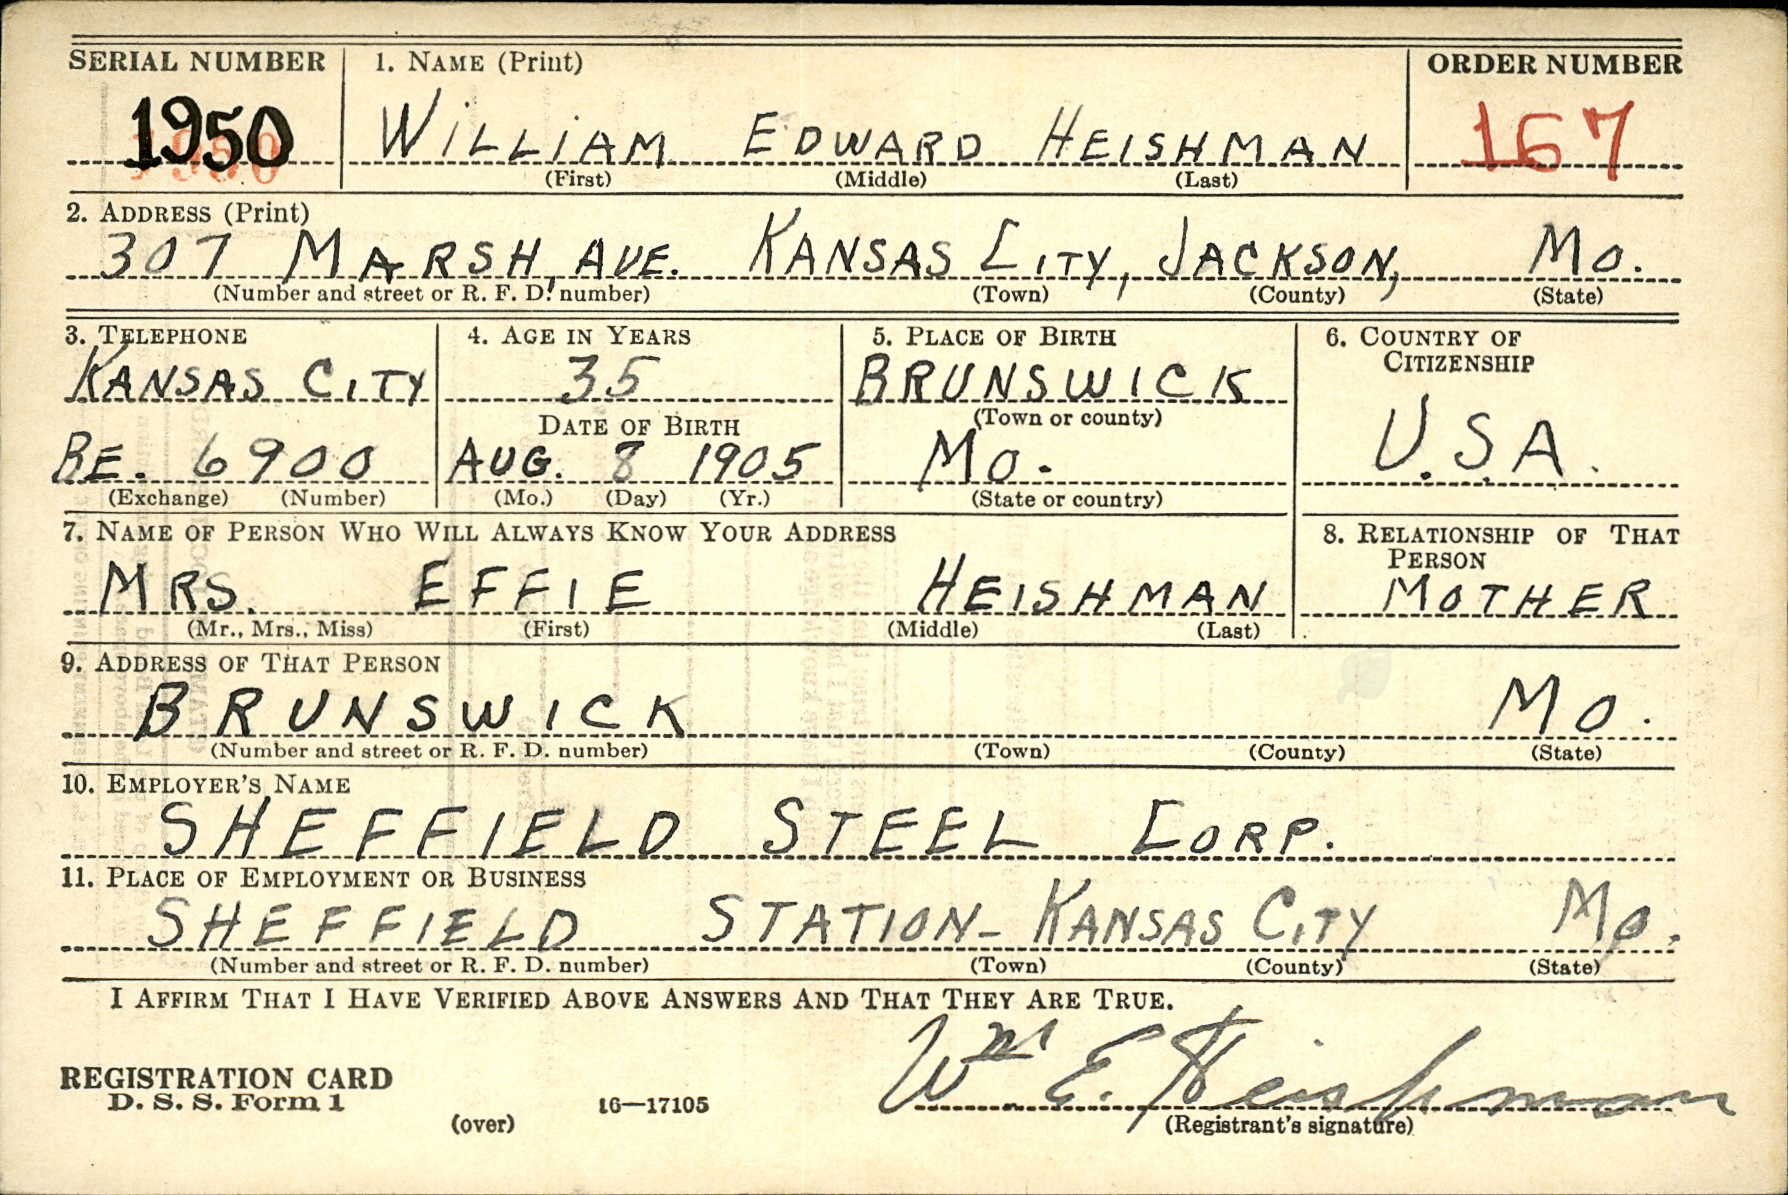 SERIAL NUMBER 1. NAME (Print) ORDER NUMBER
1950 WILLIAM EDWARD HEISHMAN 167
(First) (Middle) (Last)
2. ADDRESS (Print)
307 MARSH, AVE. KANSAS CITY, JACKSON, MO.
(Number and street or R. F. D. number) (Town) (County) (State)
3. TELEPHONE 4. AGE IN YEARS 5. PLACE OF BIRTH 6. COUNTRY OF
CITIZENSHIP
KANSAS CITY 35 BRUNSWICK
DATE OF BIRTH (Town or county) U.S.A.
BE. 6900 AUG. 8 1905 MO.
(Exchange) (Number) (Mo.) (Day) (Yr.) (State or country)
7. NAME OF PERSON WHO WILL ALWAYS KNOW YOUR ADDRESS 8. RELATIONSHIP OF THAT
PERSON
MRS. EFFIE HEISHMAN MOTHER
(Mr., Mrs., Miss) (First) (Middle) (Last)
9. ADDRESS OF THAT PERSON
BRUNSWICK MO.
(Number and street or R. F. D. number) (Town) (County) (State)
10. EMPLOYER'S NAME
SHEFFIELD STEEL CORP.
11. PLACE OF EMPLOYMENT OR BUSINESS
SHEFFIELD STATION - KANSAS CITY MO.
(Number and street or R. F. D. number) (Town) (County) (State)
I AFFIRM THAT I HAVE VERIFIED ABOVE ANSWERS AND THAT THEY ARE TRUE.
Wm E. Heishman
REGISTRATION CARD
D. S. S. Form 1 16—17105
(over) (Registrant's signature)